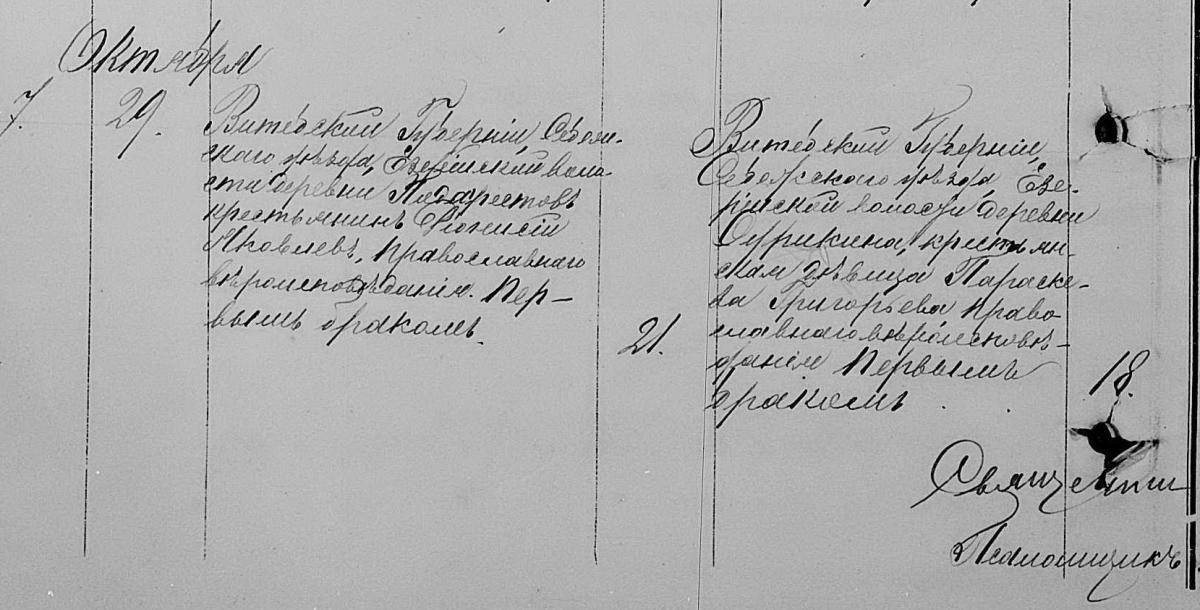 Октября
7. 29.
Витебской Губерніи, Себежс-
каго уѣзда, Езерійской воло-
сти деревни
крестьянинъ Діонисій
Яковлевъ, православнаго
вѣроисповѣданія. Пер-
вымъ бракомъ.
21.
Витебской Губерніи,
Себежскаго уѣзда Езе-
рійской волости деревни
крестьян-
ская дѣвица Параске-
ва Григорьева право-
славнаго вѣроисповѣ-
данія Первымъ
бракомъ
18.
Священни
Псаломщикъ